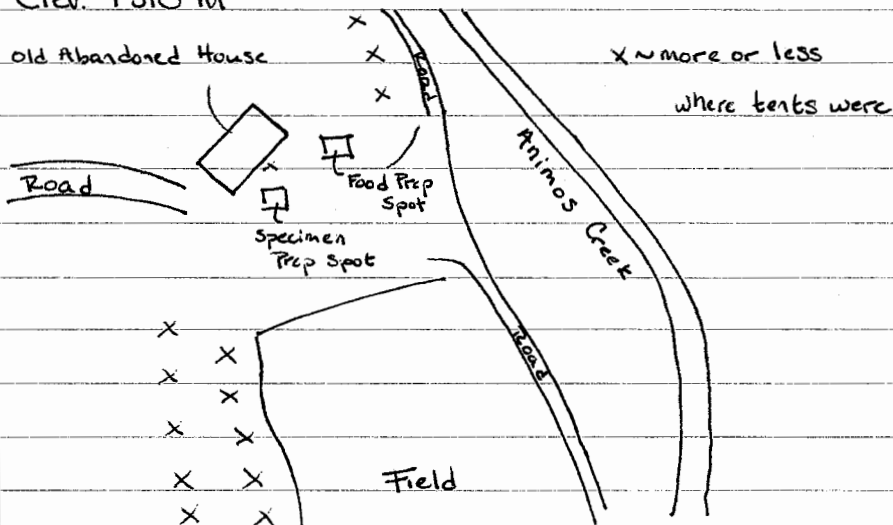 old Abandoned House
Road
x ~ more or less
where tents were
Road
Food Prep
Spot
Specimen
Prep Spot
Animos Creek
Road
Field